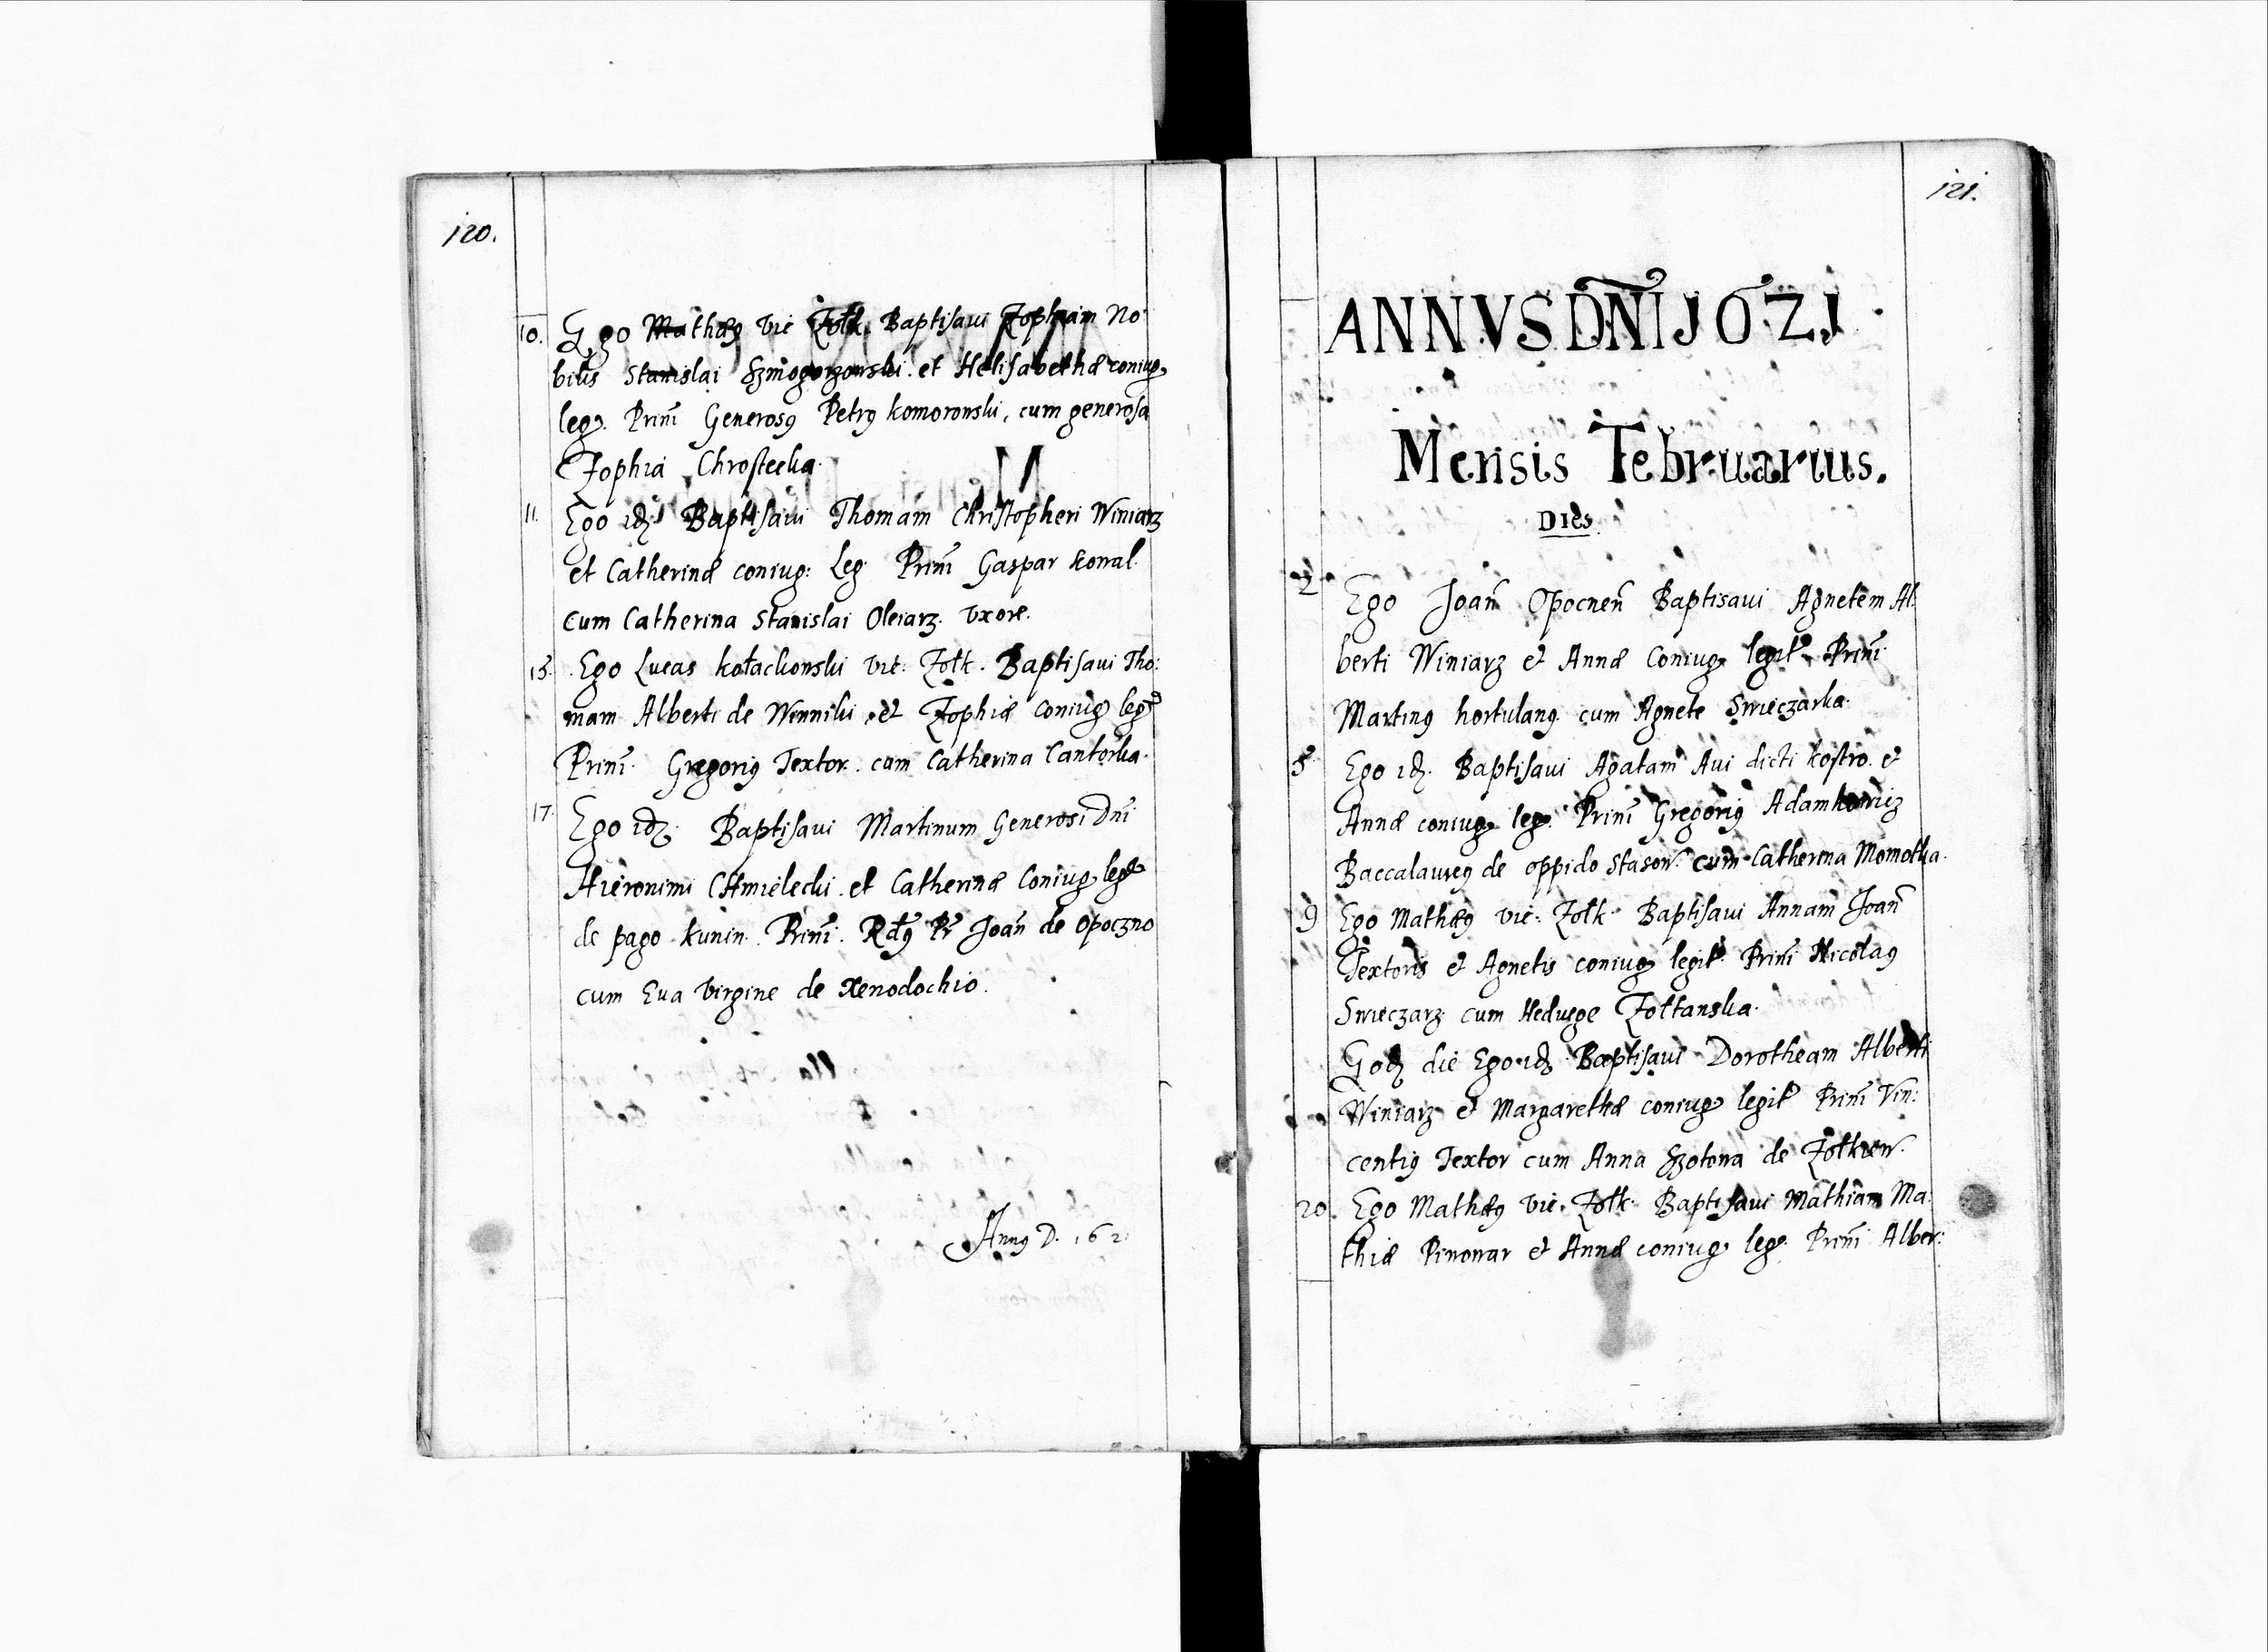 120.
10. Ego Mathæꝯ Vic Zołk. Baptisaui Zophiam No
bilis Stanislai Szmogorzowski. et Helisabethæ coniug
leg. Prini Generosꝯ Petrꝯ komorowski, cum generosa
Zophia Chrostecka.
11. Ego idẽ Baptisaui Thomam Christopheri Winiarz
et Catherinæ coniug: Leg. Prini Gaspar kowal.
cum Catherina Stanislai Oleiarz. Vxore.
15. Ego Lucas kołackowski vic: Zołk. Baptisaui Tho:
mam Alberti de Winniki. et Zophiæ coniug leg
Prini. Gregoriꝯ Textor. cum Catherina Cantorka.
17. Ego idẽ. Baptisaui Martinum Generosi Dni
Hieronimi Chmielecki. et Catherinæ Coniug leg
de pago kunin. Prini. Rdꝯ Pr Joan de Opoczno
cum Eua Virgine de Xenodochio.
Annꝯ D. 162
121.
ANNVS DNI J6ZJ
Mensis Februarius.
Dies
2 Ego Joan Opocnen Baptisaui Agnetem Al:
berti Winiarz et Annæ Coniug legit Prini
Martinꝯ hortulanꝯ cum Agnete Swieczarka.
5 Ego idẽ. Baptisaui Agatam Aui dicti kostro. et
Annæ coniug leg. Prini Gregoriꝯ Adamkowicz
Baccalaureꝯ de oppido Stasow. cum Catherina Momotka.
9 Ego Mathæꝯ vic: Zołk. Baptisaui Annam Joan
Textoris et Agnetis coniug legit. Prini Nicolaꝯ
Swieczarz cum Heduige Zołtanska.
Eodẽ die Ego idẽ Baptisaui Dorotheam Alberti
Winiarz et Margarethæ coniug legit Prini Vin:
centiꝯ Textor cum Anna Szotowa de Zołkiew.
20. Ego Mathæꝯ vic. Zołk. Baptisaui Mathiam Ma:
thiæ Piwowar et Annæ coniug leg. Prini Alber: